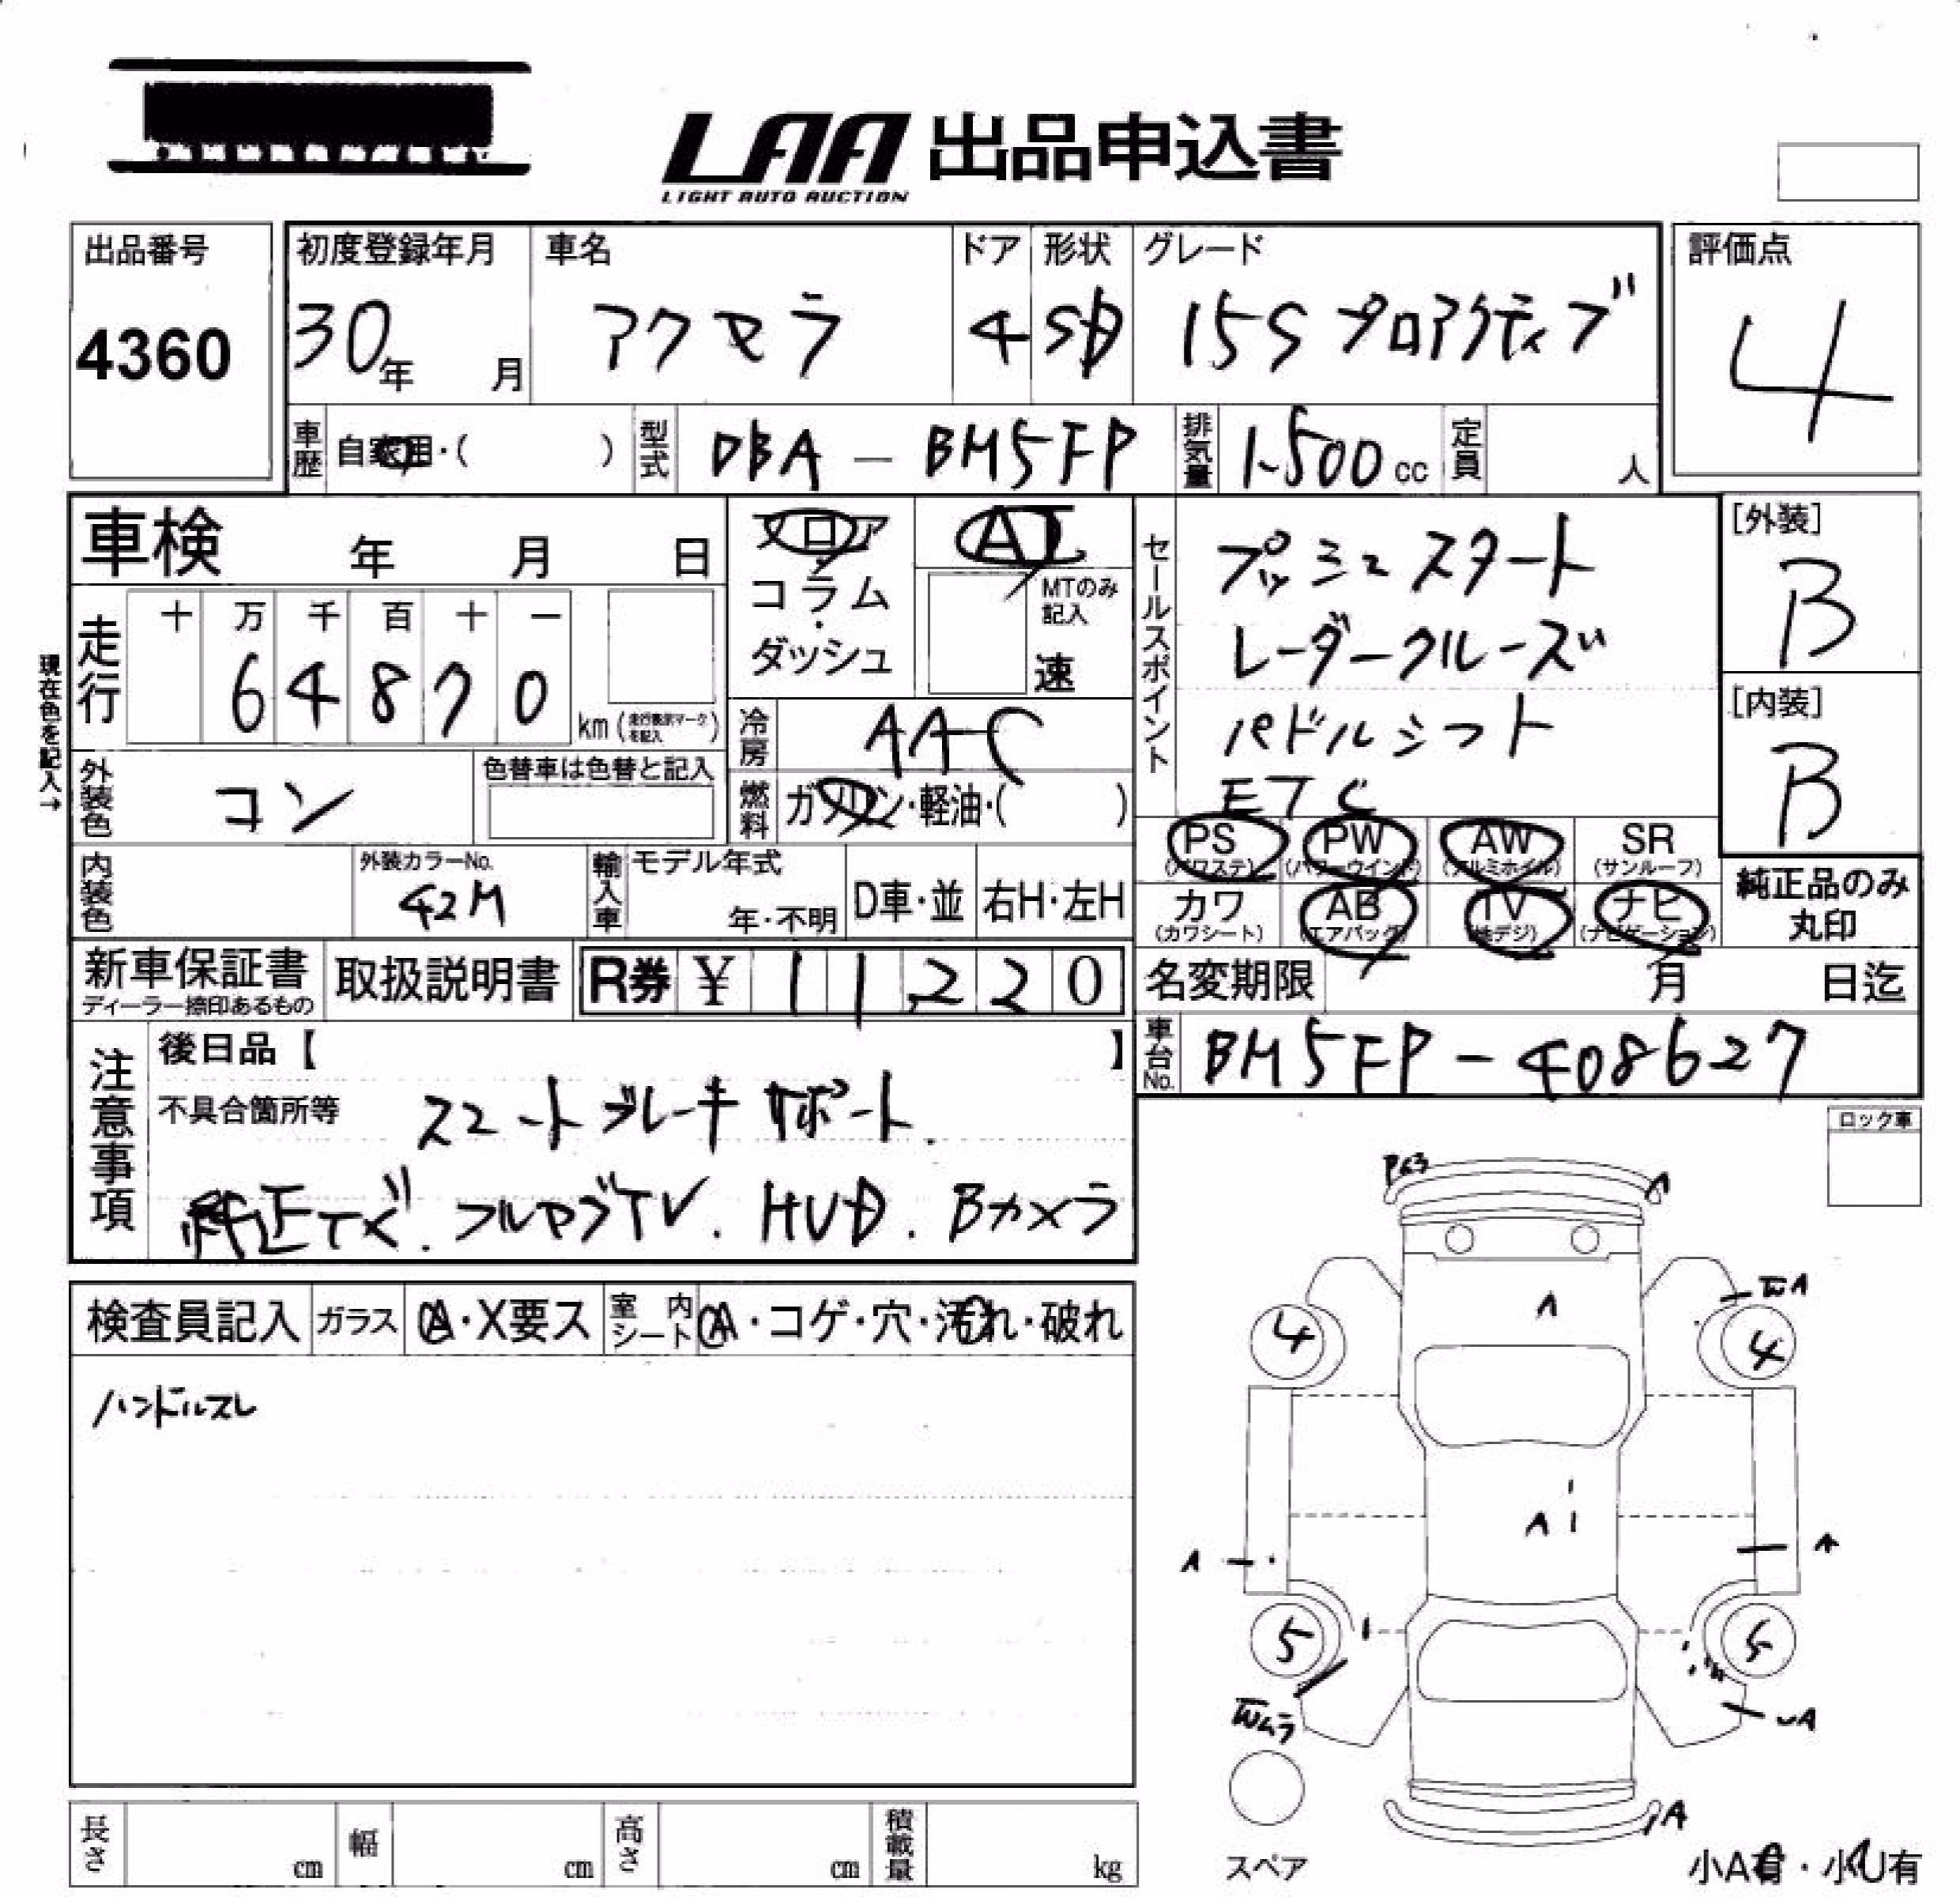 LAA 出品申込書
LIGHT AUTO AUCTION
出品番号
4360
初度登録年月
30年 月
車名
アクセラ
ドア
4
形状
SD
グレード
15S プロアクティブ
評価点
4
車歴
自家用・( )
型式
DBA - BM5FP
排気量
1500 cc
定員
人
車検 年 月 日
フロア
・
コラム
・
ダッシュ
AT
MTのみ記入
速
セールスポイント
プッシュスタート
レーダークルーズ
パドルシフト
ETC
[外装]
B
[内装]
B
現在色を記入→
走行
十 万 千 百 十 一
6 4 8 7 0
km (走行表示マークを記入)
冷房
AAC
燃料
ガソリン・軽油・( )
外装色
コン
色替車は色替と記入
PS (パワステ)
PW (パワーウインド)
AW (アルミホイル)
SR (サンルーフ)
カワ (カワシート)
AB (エアバッグ)
TV (地デジ)
ナビ (ナビゲーション)
純正品のみ
丸印
内装色
外装カラーNo.
42M
輸入車
モデル年式
年・不明
D車・並
右H・左H
新車保証書
ディーラー捺印あるもの
取扱説明書
R券 ¥ 1 1 2 2 0
名変期限 月 日迄
車台No.
BM5FP - 408627
注意事項
後日品【 】
不具合箇所等
スマートブレーキサポート.
純正ナビ. フルセグTV. HUD. Bカメラ
ロック車
検査員記入
ガラス
A・X要ス
室内シート
A・コゲ・穴・汚れ・破れ
ハンドルスレ
A
A
4
4
A
A
A
A
5
5
A
スペア
小A有・小U有
長さ cm
幅 cm
高さ cm
積載量 kg